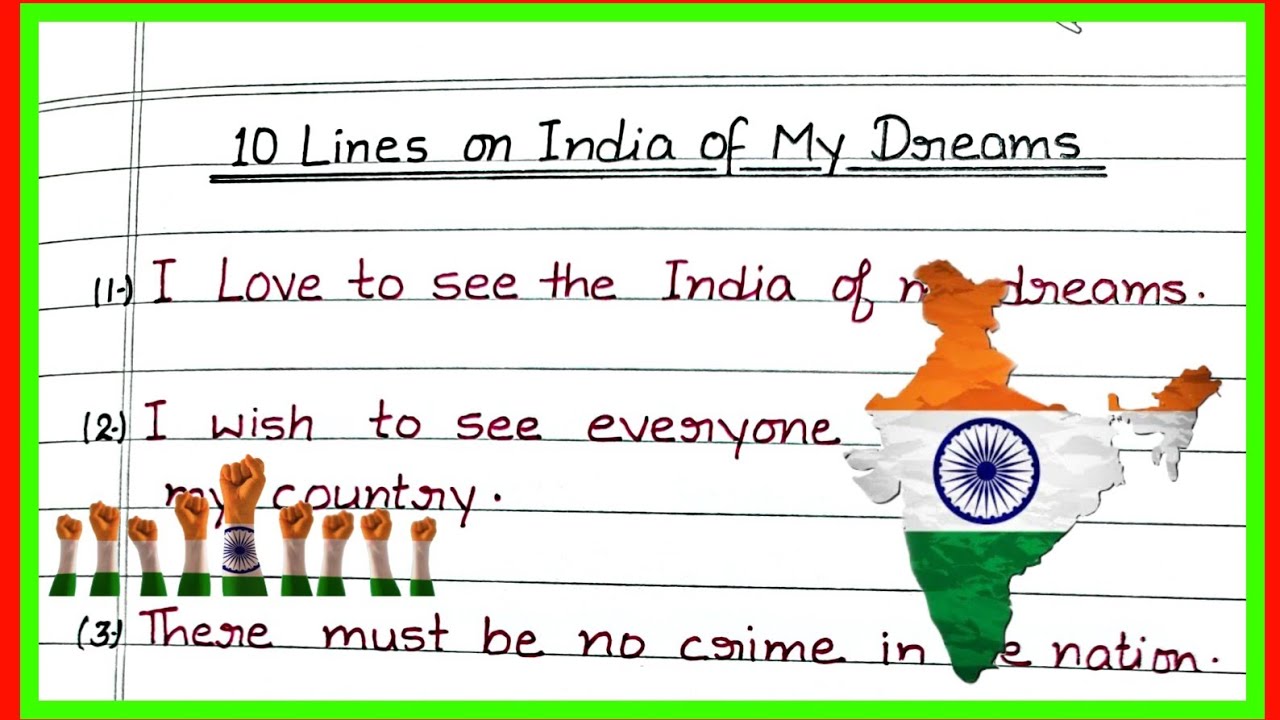 10 Lines on India of My Dreams
(1.) I Love to see the India of dreams.
(2.) I wish to see everyone
my country.
(3.) There must be no crime in nation.